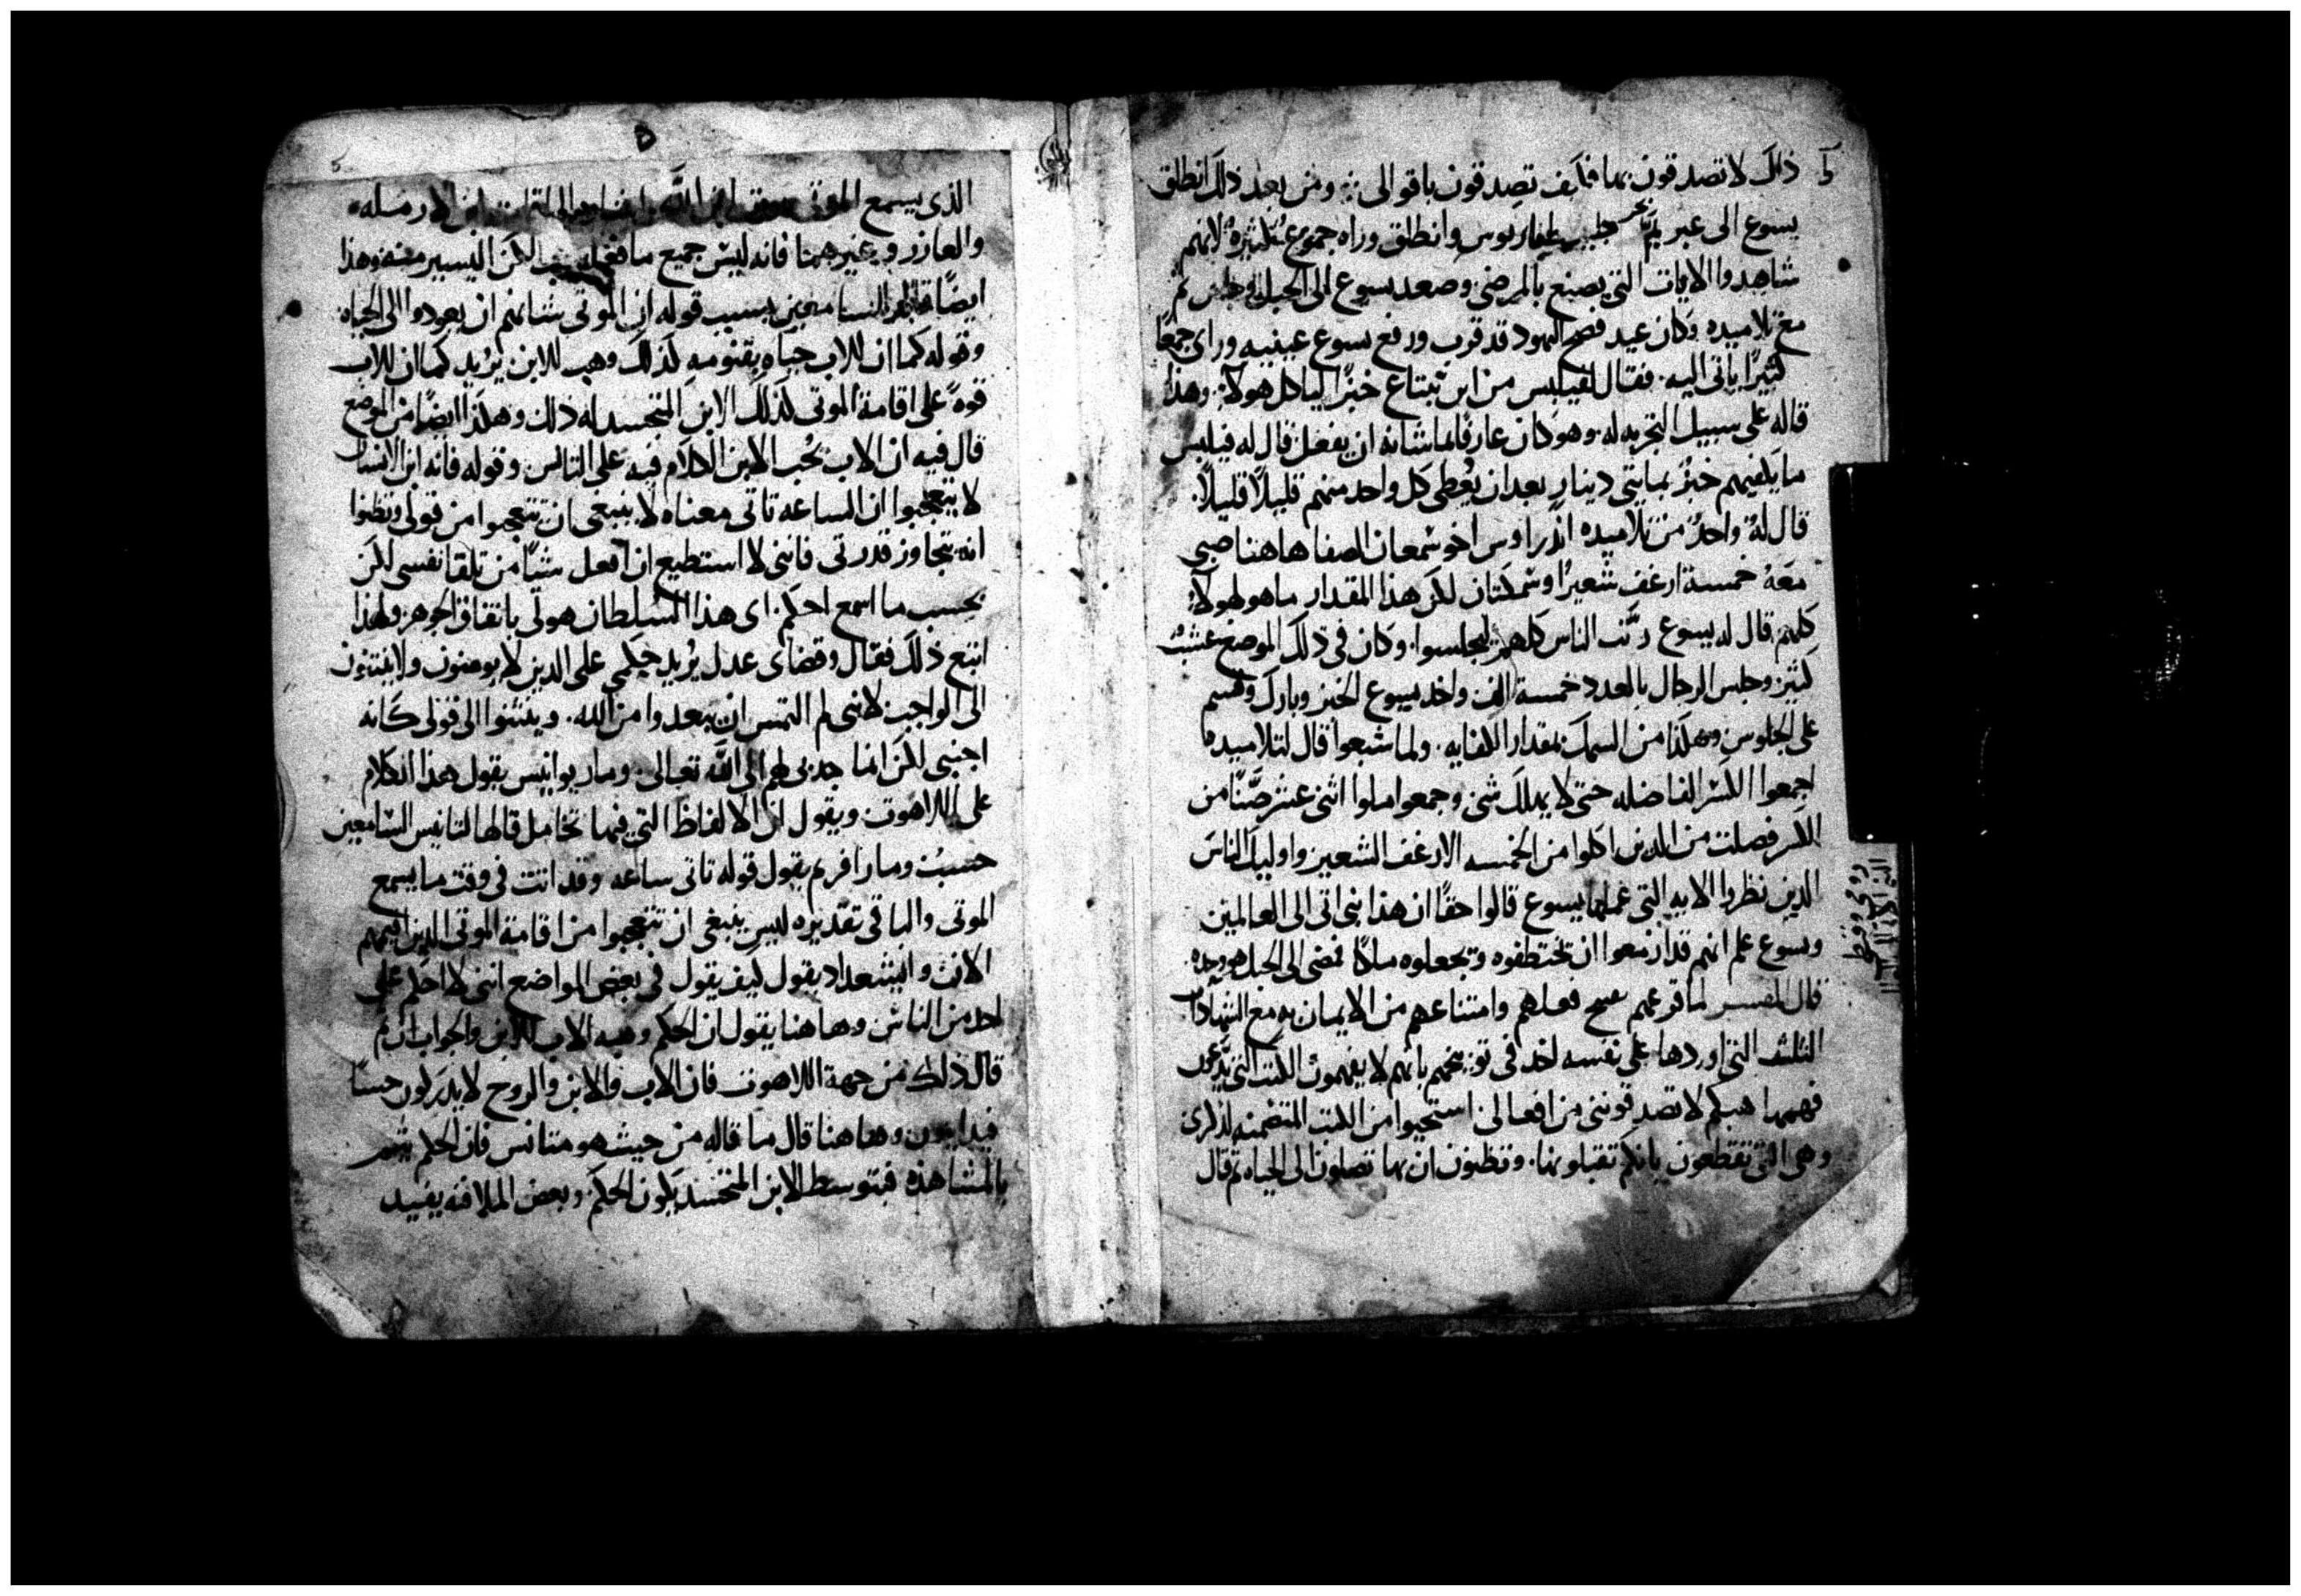 ذلك لا تصدقون بها فكيف تصدقون باقوالى ومن بعد ذلك انطلق
يسوع الى عبر يم بحر وانطلق وراه جموع كثيره لانهم
شاهدوا الايات التى يصنع بالمرضى وصعد يسوع الى الجبل وجلس ثم
مع تلاميده وكان عيد فصح اليهود قد قرب ورفع يسوع عينيه وراى جمعًا
كثيرًا ياتى اليه فقال لفيلبس من اين نبتاع خبزًا لياكل هولآ وهذا
قاله على سبيل التجربه له وهو كان عارفًا بما شانه ان يفعل قال له فيلبس
ما يكفيهم خبزٌ بمايتى دينارٍ بعد ان يُعطى كل واحد منهم قليلاً قليلاً
قال لهُ واحدٌ من تلاميده اندراوس اخو شمعان الصفا هاهنا صبى
معَهُ خمسة ارغف شعيرًا وسمكتان لكن هذا المقدار ما هو لهولآ
كلهم قال له يسوع رتّب الناس كلهم ليجلسوا وكان فى ذلك الموضع عشبٌ
كثير وجلس الرجال بالعدد خمسة الف واخد يسوع الخبز وبارك وقسم
على الجلوس وهكذا من السمك بمقدار الكفايه ولما شبعوا قال لتلاميده
اجمعوا الكسر الفاضله حتى لا يهلك شى وجمعوا ملوا اثنى عشر صنًّا من
الكسر فصلت من الدين اكلوا من الخمسه الارغف الشعير واوليك الناس
الدين نظروا الايه التى عملها يسوع قالوا حقًا ان هذا نبى اتى الى العالمين
ويسوع علم انهم قد ازمعوا ان تختطفوه وتجعلوه ملكًا فمضى الى الجبل هو وحده
قال المفسر لما قرعهم بقبيح فعلهم وامتناعهم من الايمان به مع الشهادات
الثلث التى اوردها على نفسه اخد فى توبيخهم بانهم لا يفهمون الكتب التى يدّعون
فهمها هبكم لا تصدقوننى من افعالى استحيوا من الكتب المتضمنه لذكرى
وهى التى تقطعون بانكم تقبلونها وتظنون ان بها تصلون الى الحياه ثم قال
الذى يسمع الموتى صوت ابن الله ابن الارمله
والعازر وغيرهما فانه ليس جميع ما فعله لكن اليسير منه وهذا
ايضًا السامعين بسبب قوله ان الموتى شانهم ان يعودوا الى الحياه
وقوله كما ان للاب حياه بقنومه كذلك وهب للابن يريد كما ان للاب
قوةً على اقامة الموتى كذلك الابن المتجسد له ذلك وهكذا ايضًا من الموضع
قال فيه ان الاب يحب الابن الكلام فيه على التانس وقوله فانه ابن الانسان
لا يتعجبوا ان الساعه تاتى معناه لا ينبغى ان تتعجبوا من قولى وتظنوا
انه يتجاوز قدرتى فاننى لا استطيع ان افعل شيًا من تلقا نفسى لكن
بحسب ما اسمع احكم اى هذا السلطان هو لى باتفاق الجوهر ولهذا
اتبع ذلك فقال وقضاى عدل يريد حكمى على الدين لا يومنون ولا ينتنون
الى الواجب لاننى لم التمس ان يبعدوا من الله وينتنوا الى قولى كانه
اجنبى لكن انما جدبى لهم الى الله تعالى ومار يوانيس يقول هذا الكلام
على اللاهوت ويقول ان الالفاظ التى فيها تحامل قالها لتانيس السامعين
حسبُ ومار افريم يقول قوله تاتى ساعه وقد اتت فى وقت ما يسمع
الموتى والباقى تقديره ليس ينبغى ان تتعجبوا من اقامة الموتى الدين اقيمهم
الان وايشعداد يقول كيف يقول فى بعض المواضع اننى لا احكم على
احد من الناس وهاهنا يقول ان الحكم وهبه الاب للابن والجواب ان ثم
قال ذلك من جهة اللاهوت فان الاب والابن والروح لا يدركون حسًا
فيدانون وهاهنا قال ما قاله من حيث هو متانس فان الحكم
بالمشاهده فبتوسط الابن المتجسد يكون الحكم وبعض الملافنه يفيد